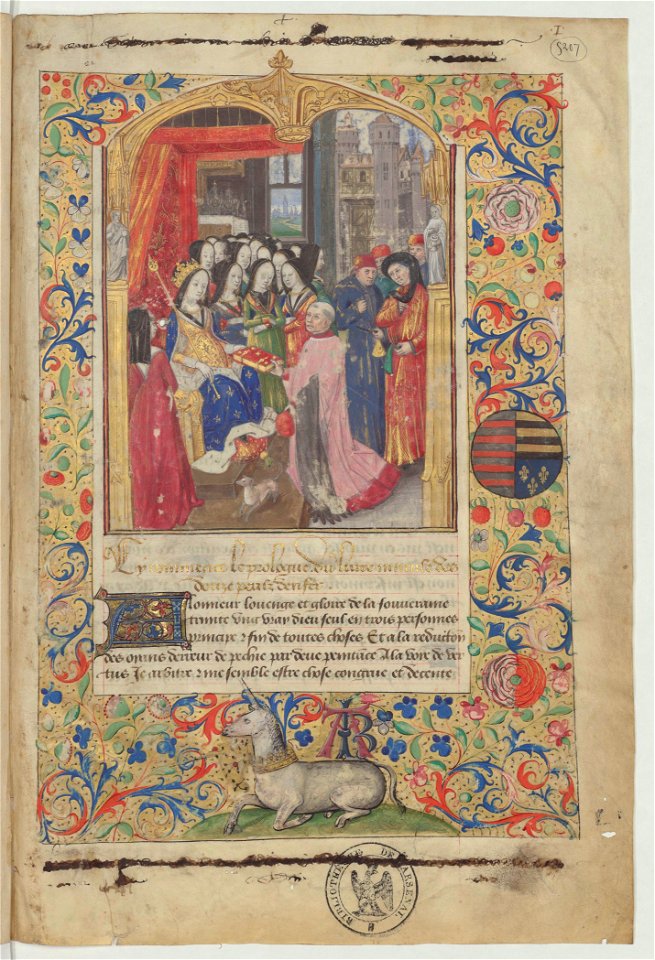 I
5207
Cy commence le prologue du liure intitule des
douze perilz denfer
A lonneur louenge et gloire de la souueraine
trinite vng vray dieu seul en trois personnes
principe ⁊ fin de toutes choses Et a la reduction
des de pechie par deue A la voie de ver
tus Je arbitre ⁊ me semble estre chose congrue et decente
BIBLIOTHEQUE DE L'ARSENAL